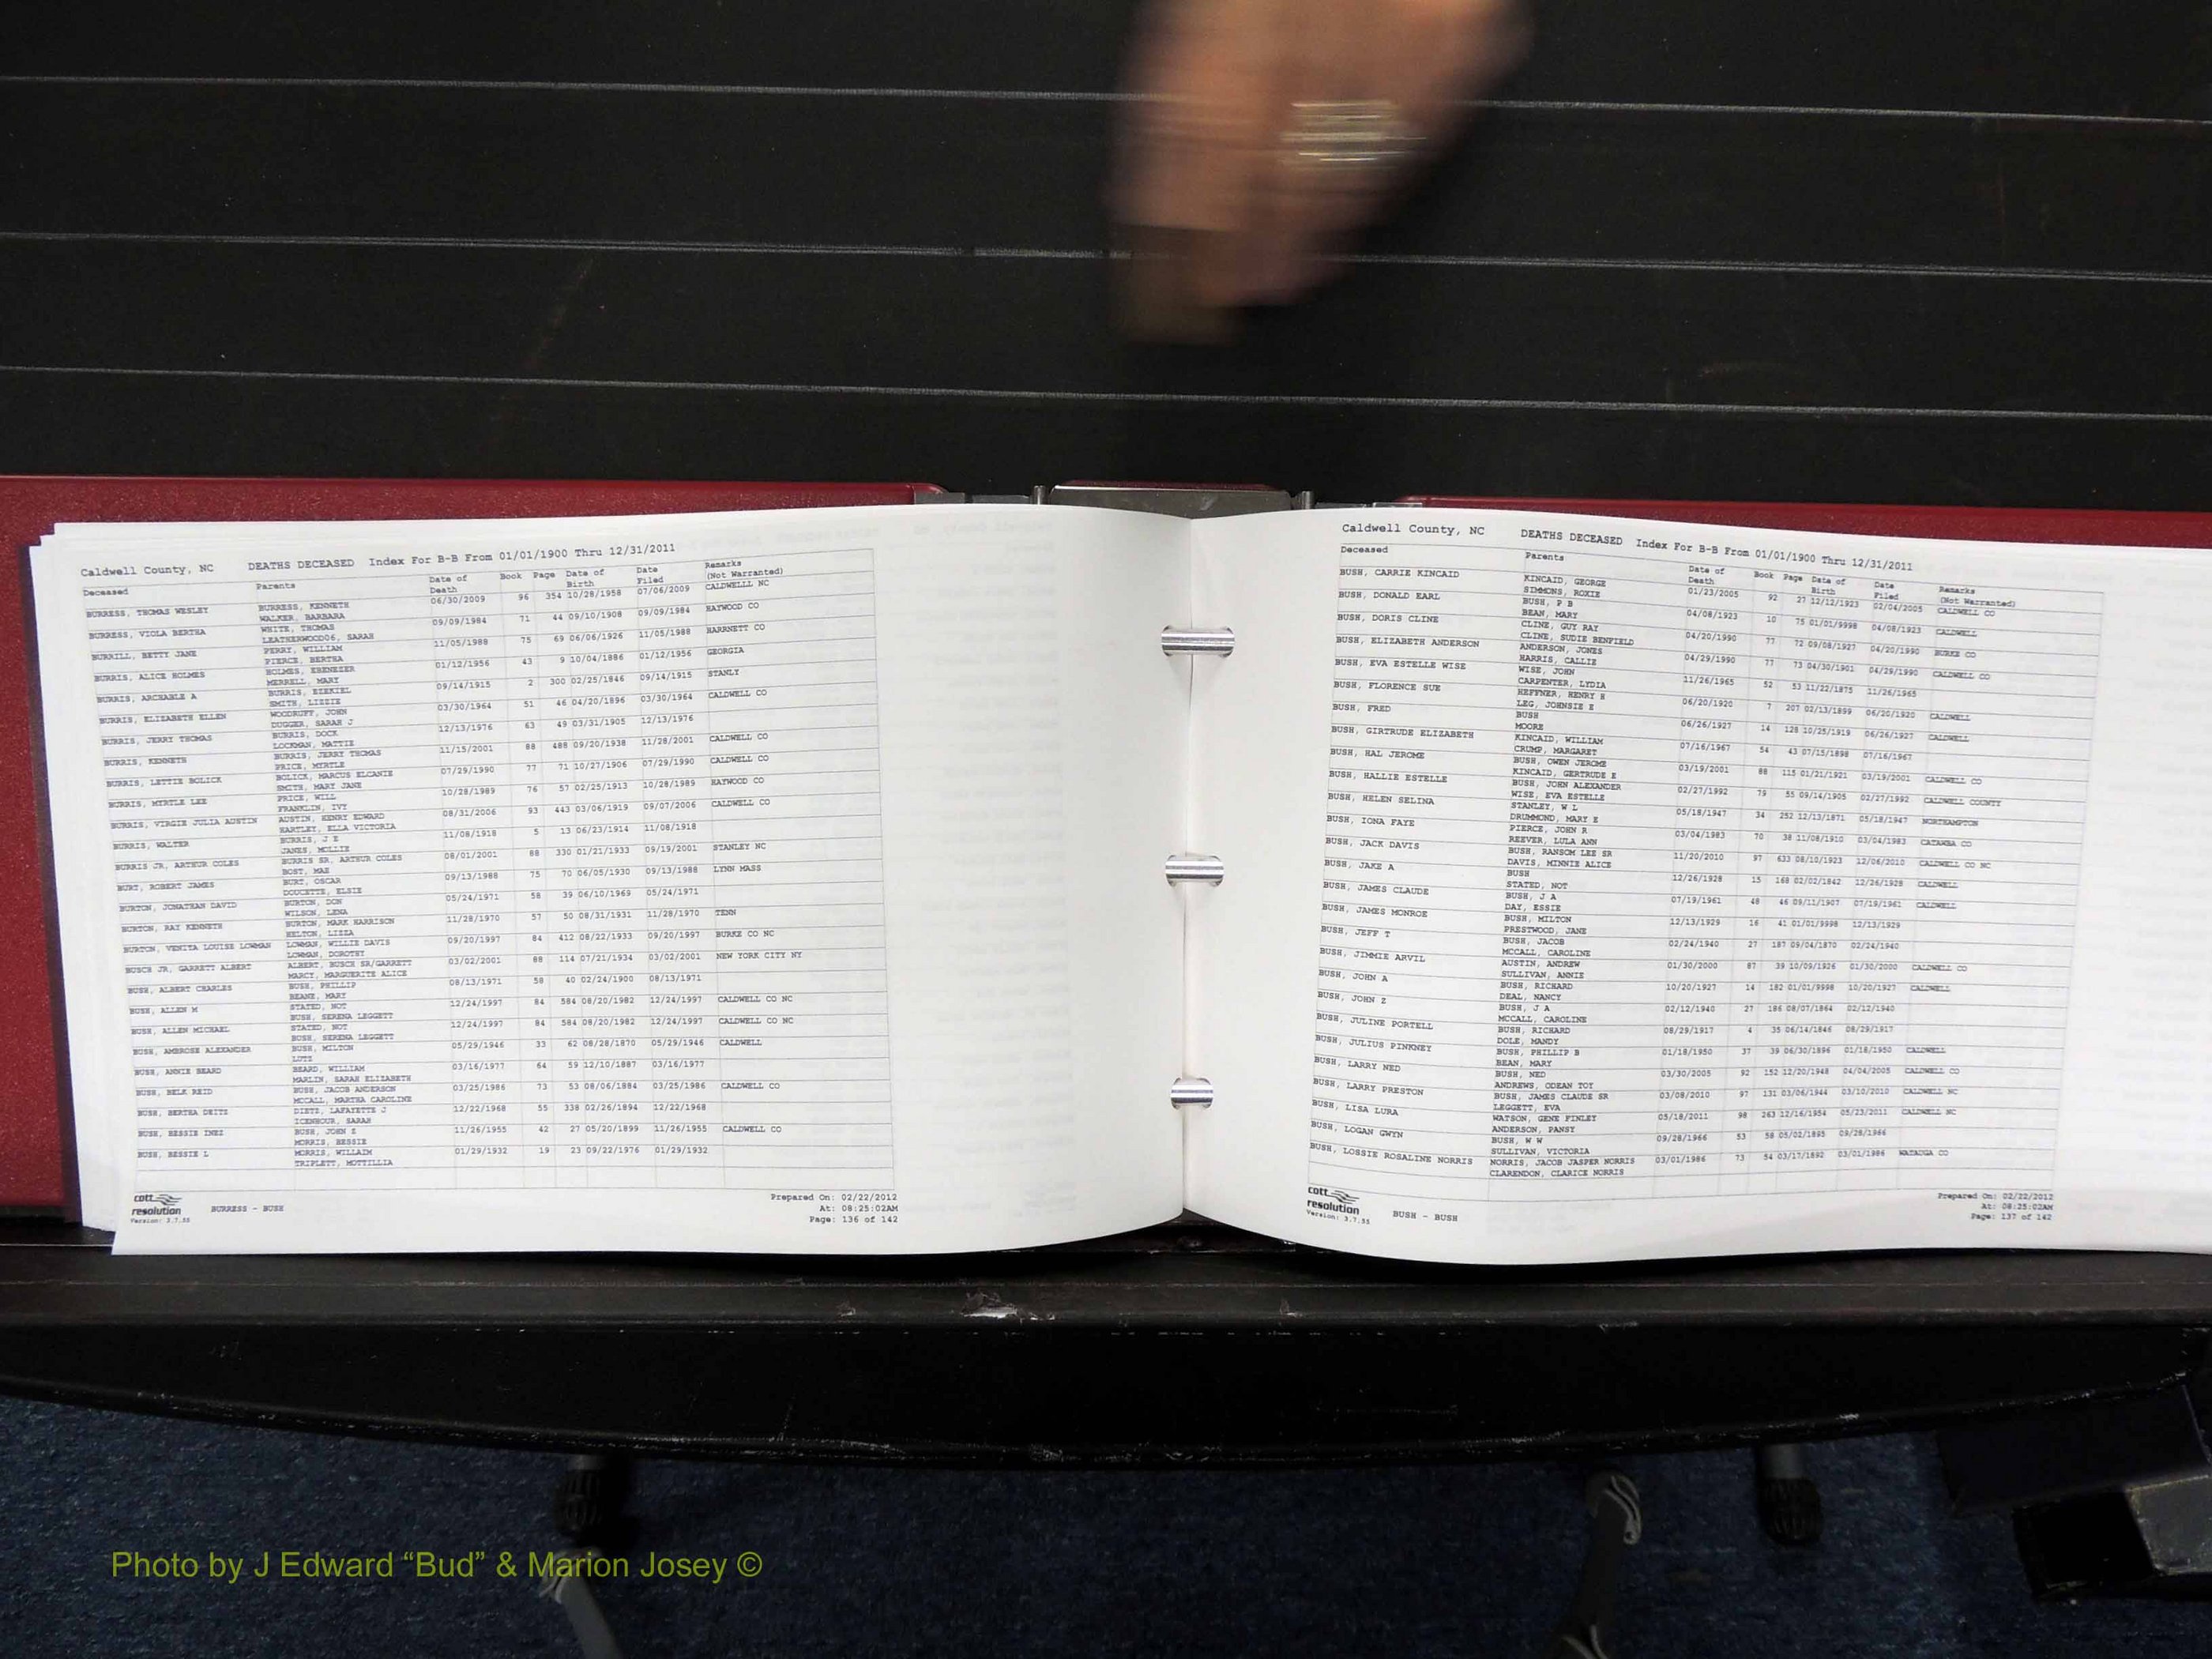 Caldwell County, NC DEATHS DECEASED Index For B-B From 01/01/1900 Thru 12/31/2011
Deceased Parents Date of Death Book Page Date of Birth Date Filed Remarks (Not Warranted)
BURRESS, THOMAS WESLEY BURRESS, KENNETH 06/30/2009 96 354 10/28/1958 07/06/2009 CALDWELLL NC
WALKER, BARBARA
BURRESS, VIOLA BERTHA WHITE, THOMAS 09/09/1984 71 44 09/10/1908 09/09/1984 HAYWOOD CO
LEATHERWOOD06, SARAH
BURRILL, BETTY JANE PERRY, WILLIAM 11/05/1988 75 69 06/06/1926 11/05/1988 HARRNETT CO
PIERCE, BERTHA
BURRIS, ALICE HOLMES HOLMES, EBENEZER 01/12/1956 43 9 10/04/1886 01/12/1956 GEORGIA
MERRELL, MARY
BURRIS, ARCHABLE A BURRIS, EZEKIEL 09/14/1915 2 300 02/25/1846 09/14/1915 STANLY
SMITH, LIZZIE
BURRIS, ELIZABETH ELLEN WOODRUFF, JOHN 03/30/1964 51 46 04/20/1896 03/30/1964 CALDWELL CO
DUGGER, SARAH J
BURRIS, JERRY THOMAS BURRIS, DOCK 12/13/1976 63 49 03/31/1905 12/13/1976
LOCKMAN, MATTIE
BURRIS, KENNETH BURRIS, JERRY THOMAS 11/15/2001 88 488 09/20/1938 11/28/2001 CALDWELL CO
PRICE, MYRTLE
BURRIS, LETTIE BOLICK BOLICK, MARCUS ELCANIE 07/29/1990 77 71 10/27/1906 07/29/1990 CALDWELL CO
SMITH, MARY JANE
BURRIS, MYRTLE LEE PRICE, WILL 10/28/1989 76 57 02/25/1913 10/28/1989 HAYWOOD CO
FRANKLIN, IVY
BURRIS, VIRGIE JULIA AUSTIN AUSTIN, HENRY EDWARD 08/31/2006 93 443 03/06/1919 09/07/2006 CALDWELL CO
HARTLEY, ELLA VICTORIA
BURRIS, WALTER BURRIS, J E 11/08/1918 5 13 06/23/1914 11/08/1918
JANES, MOLLIE
BURRIS JR, ARTHUR COLES BURRIS SR, ARTHUR COLES 08/01/2001 88 330 01/21/1933 09/19/2001 STANLEY NC
BOST, MAE
BURT, ROBERT JAMES BURT, OSCAR 09/13/1988 75 70 06/05/1930 09/13/1988 LYNN MASS
DOUCETTE, ELSIE
BURTON, JONATHAN DAVID BURTON, DON 05/24/1971 58 39 06/10/1969 05/24/1971
WILSON, LENA
BURTON, RAY KENNETH BURTON, MARK HARRISON 11/28/1970 57 50 08/31/1931 11/28/1970 TENN
HELTON, LIZZA
BURTON, VENITA LOUISE LOWMAN LOWMAN, WILLIE DAVIS 09/20/1997 84 412 08/22/1933 09/20/1997 BURKE CO NC
LOWMAN, DOROTHY
BUSCH JR, GARRETT ALBERT ALBERT, BUSCH SR/GARRETT 03/02/2001 88 114 07/21/1934 03/02/2001 NEW YORK CITY NY
MARCY, MARGUERITE ALICE
BUSH, ALBERT CHARLES BUSH, PHILLIP 08/13/1971 58 40 02/24/1900 08/13/1971
BEANE, MARY
BUSH, ALLEN M STATED, NOT 12/24/1997 84 584 08/20/1982 12/24/1997 CALDWELL CO NC
BUSH, SERENA LEGGETT
BUSH, ALLEN MICHAEL STATED, NOT 12/24/1997 84 584 08/20/1982 12/24/1997 CALDWELL CO NC
BUSH, SERENA LEGGETT
BUSH, AMBROSE ALEXANDER BUSH, MILTON 05/29/1946 33 62 08/28/1870 05/29/1946 CALDWELL
LUTZ
BUSH, ANNIE BEARD BEARD, WILLIAM 03/16/1977 64 59 12/10/1887 03/16/1977
MARLIN, SARAH ELIZABETH
BUSH, BELK REID BUSH, JACOB ANDERSON 03/25/1986 73 53 08/06/1884 03/25/1986 CALDWELL CO
MCCALL, MARTHA CAROLINE
BUSH, BERTHA DEITZ DIETZ, LAFAYETTE J 12/22/1968 55 338 02/26/1894 12/22/1968
ICENHOUR, SARAH
BUSH, BESSIE INEZ BUSH, JOHN Z 11/26/1955 42 27 05/20/1899 11/26/1955 CALDWELL CO
MORRIS, BESSIE
BUSH, BESSIE L MORRIS, WILLAIM 01/29/1932 19 23 09/22/1976 01/29/1932
TRIPLETT, MOTTILLIA
cott resolution
Version: 3.7.55
BURRESS - BUSH
Prepared On: 02/22/2012
At: 08:25:02AM
Page: 136 of 142
Caldwell County, NC DEATHS DECEASED Index For B-B From 01/01/1900 Thru 12/31/2011
Deceased Parents Date of Death Book Page Date of Birth Date Filed Remarks (Not Warranted)
BUSH, CARRIE KINCAID KINCAID, GEORGE 01/23/2005 92 27 12/12/1923 02/04/2005 CALDWELL CO
SIMMONS, ROXIE
BUSH, DONALD EARL BUSH, P B 04/08/1923 10 75 01/01/9998 04/08/1923 CALDWELL
BEAN, MARY
BUSH, DORIS CLINE CLINE, GUY RAY 04/20/1990 77 72 09/08/1927 04/20/1990 BURKE CO
CLINE, SUDIE BENFIELD
BUSH, ELIZABETH ANDERSON ANDERSON, JONES 04/29/1990 77 73 04/30/1901 04/29/1990 CALDWELL CO
HARRIS, CALLIE
BUSH, EVA ESTELLE WISE WISE, JOHN 11/26/1965 52 53 11/22/1875 11/26/1965
CARPENTER, LYDIA
BUSH, FLORENCE SUE HEFFNER, HENRY H 06/20/1920 7 207 02/13/1899 06/20/1920 CALDWELL
LEG, JOHNSIE E
BUSH, FRED BUSH 06/26/1927 14 128 10/25/1919 06/26/1927 CALDWELL
MOORE
BUSH, GIRTRUDE ELIZABETH KINCAID, WILLIAM 07/16/1967 54 43 07/15/1898 07/16/1967
CRUMP, MARGARET
BUSH, HAL JEROME BUSH, OWEN JEROME 03/19/2001 88 115 01/21/1921 03/19/2001 CALDWELL CO
KINCAID, GERTRUDE E
BUSH, HALLIE ESTELLE BUSH, JOHN ALEXANDER 02/27/1992 79 55 09/14/1905 02/27/1992 CALDWELL COUNTY
WISE, EVA ESTELLE
BUSH, HELEN SELINA STANLEY, W L 05/18/1947 34 252 12/13/1871 05/18/1947 NORTHAMPTON
DRUMMOND, MARY E
BUSH, IONA FAYE PIERCE, JOHN R 03/04/1983 70 38 11/08/1910 03/04/1983 CATAWBA CO
REEVER, LULA ANN
BUSH, JACK DAVIS BUSH, RANSOM LEE SR 11/20/2010 97 633 08/10/1923 12/06/2010 CALDWELL CO NC
DAVIS, MINNIE ALICE
BUSH, JAKE A BUSH 12/26/1928 15 168 02/02/1842 12/26/1928 CALDWELL
STATED, NOT
BUSH, JAMES CLAUDE BUSH, J A 07/19/1961 48 46 09/11/1907 07/19/1961 CALDWELL
DAY, ESSIE
BUSH, JAMES MONROE BUSH, MILTON 12/13/1929 16 41 01/01/9998 12/13/1929
PRESTWOOD, JANE
BUSH, JEFF T BUSH, JACOB 02/24/1940 27 187 09/04/1870 02/24/1940
MCCALL, CAROLINE
BUSH, JIMMIE ARVIL AUSTIN, ANDREW 01/30/2000 87 39 10/09/1926 01/30/2000 CALDWELL CO
SULLIVAN, ANNIE
BUSH, JOHN A BUSH, RICHARD 10/20/1927 14 182 01/01/9998 10/20/1927 CALDWELL
DEAL, NANCY
BUSH, JOHN Z BUSH, J A 02/12/1940 27 186 08/07/1864 02/12/1940
MCCALL, CAROLINE
BUSH, JULINE PORTELL BUSH, RICHARD 08/29/1917 4 35 06/14/1846 08/29/1917
DOLE, MANDY
BUSH, JULIUS PINKNEY BUSH, PHILLIP B 01/18/1950 37 39 06/30/1896 01/18/1950 CALDWELL
BEAN, MARY
BUSH, LARRY NED BUSH, NED 03/30/2005 92 152 12/20/1948 04/04/2005 CALDWELL CO
ANDREWS, ODEAN TOY
BUSH, LARRY PRESTON BUSH, JAMES CLAUDE SR 03/08/2010 97 131 03/06/1944 03/10/2010 CALDWELL NC
LEGGETT, EVA
BUSH, LISA LURA WATSON, GENE FINLEY 05/18/2011 98 263 12/16/1954 05/23/2011 CALDWELL NC
ANDERSON, PANSY
BUSH, LOGAN GWYN BUSH, W W 09/28/1966 53 58 05/02/1895 09/28/1966
SULLIVAN, VICTORIA
BUSH, LOSSIE ROSALINE NORRIS NORRIS, JACOB JASPER NORRIS 03/01/1986 73 54 03/17/1892 03/01/1986 WATAUGA CO
CLARENDON, CLARICE NORRIS
cott resolution
Version: 3.7.55
BUSH - BUSH
Prepared On: 02/22/2012
At: 08:25:02AM
Page: 137 of 142
Photo by J Edward “Bud” & Marion Josey ©